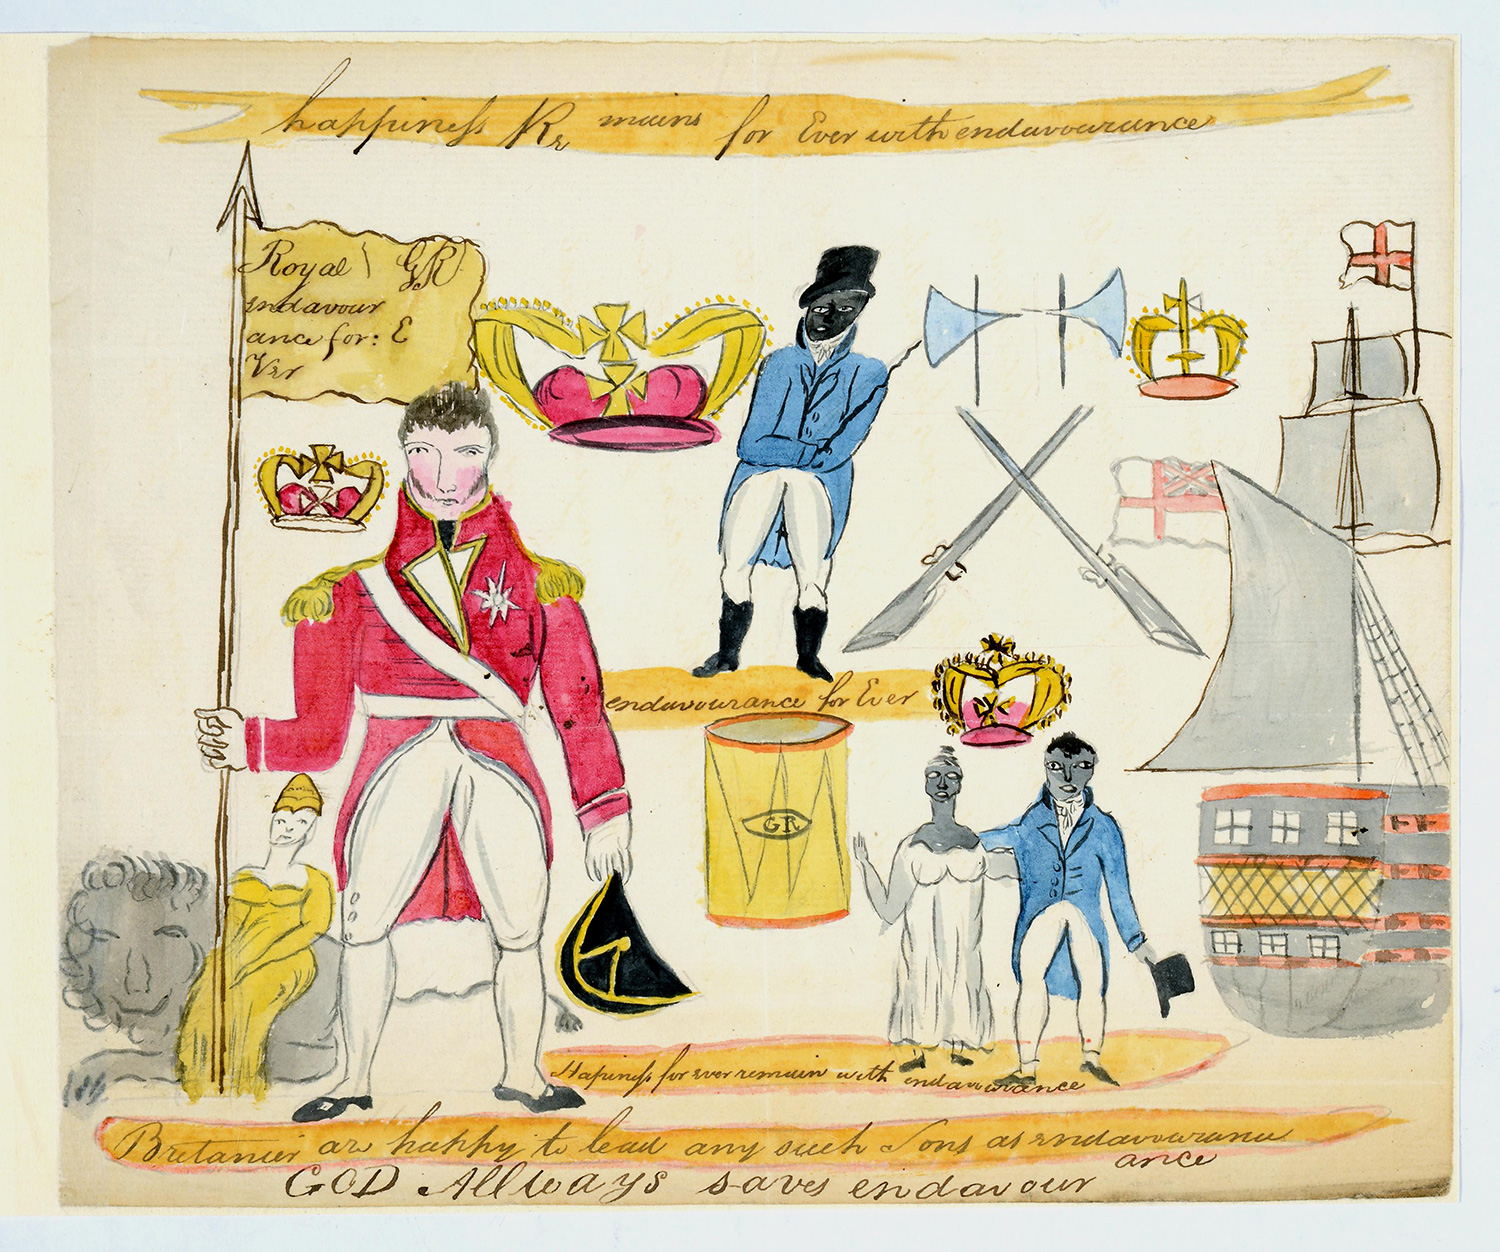 happiness Re mains for Ever with endavourance
Royal GR
endavour
ance for: E
Ver
endavourance for Ever
GR
Hapiness for ever remain with endavourance
Britanier are happy to lead any such Sons as endavourance
ance
GOD Allways saves endavour